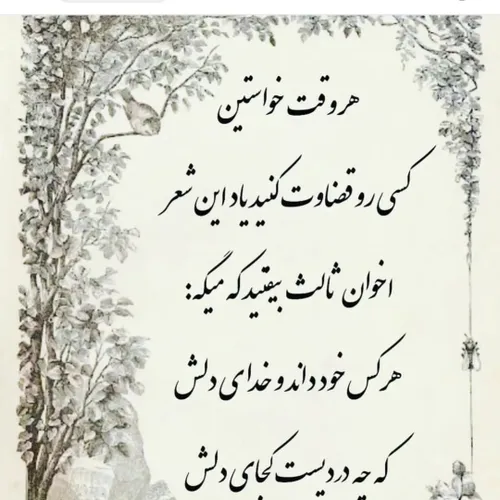 هر وقت خواستین
کسی رو قضاوت کنید یاد این شعر
اخوان ثالث بیفتید که میگه:
هر کس خود داند و خدای دلش
که چه دردیست کجای دلش